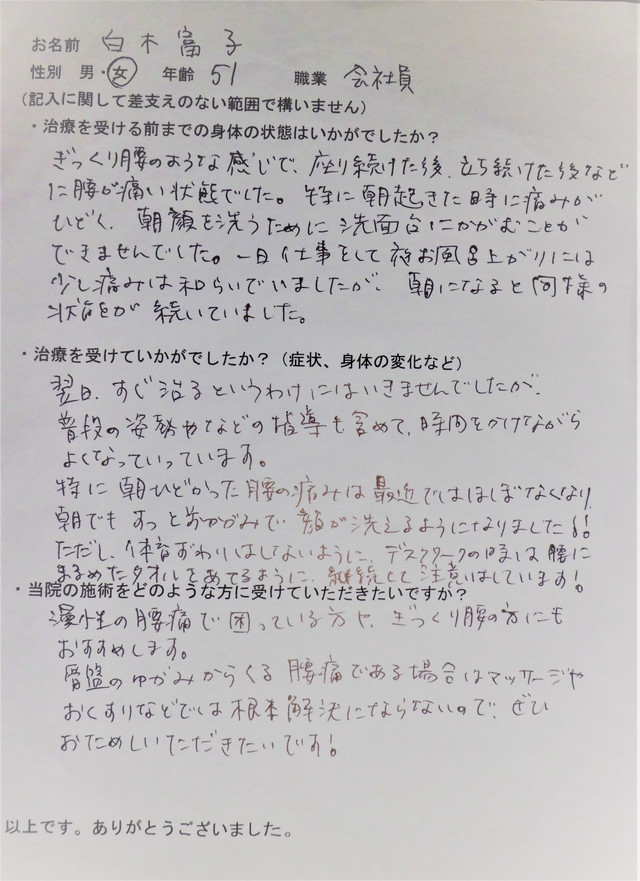 お名前 白木富子
性別 男・女 年齢 51 職業 会社員
（記入に関して差支えのない範囲で構いません）
・治療を受ける前までの身体の状態はいかがでしたか？
ぎっくり腰のような感じで、座り続けた後、立ち続けた後など
に腰が痛い状態でした。特に朝起きた時に痛みが
ひどく、朝顔を洗うために洗面台にかがむことが
できませんでした。一日仕事をして夜お風呂上がりには
少し痛みは和らいでいましたが、朝になると同様の
状態が続いていました。
・治療を受けていかがでしたか？（症状、身体の変化など）
翌日、すぐ治るというわけにはいきませんでしたが、
普段の姿勢やなどの指導も含めて、時間をかけながら
よくなっていっています。
特に朝ひどかった腰の痛みは最近ではほぼなくなり、
朝でもすっと前かがみで顔が洗えるようになりました!!
ただし、体育ずわりはしないように、デスクワークの時は腰に
まるめたタオルをあてるように、継続して注意はしています!
・当院の施術をどのような方に受けていただきたいですが？
慢性の腰痛で困っている方や、ぎっくり腰の方にも
おすすめします。
骨盤のゆがみからくる腰痛である場合はマッサージや
おくすりなどでは根本解決にならないので、ぜひ
おためしいただきたいです!
以上です。ありがとうございました。